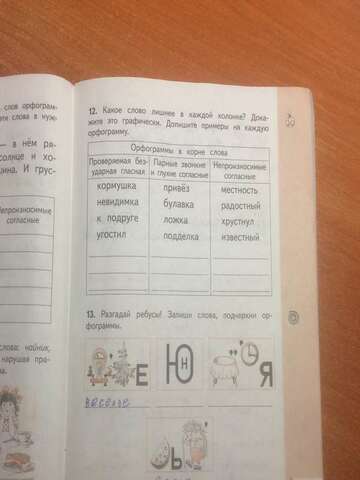 слов орфограм-
эти слова в нуж-
— в нём ря-
солнце и хо-
И грус-
Непроизносимые
согласные
слова: чайник,
нарушая пра-
12. Какое слово лишнее в каждой колонке? Дока-
жите это графически. Допишите примеры на каждую
орфограмму.
Орфограммы в корне слова
Проверяемая без-
ударная гласная
Парные звонкие
и глухие согласные
Непроизносимые
согласные
кормушка привёз местность
невидимка булавка радостный
к подруге ложка хрустнул
угостил подделка известный
13. Разгадай ребусы! Запиши слова, подчеркни ор-
фограммы.
Е Ю Н ' Я
веселье
Ь '